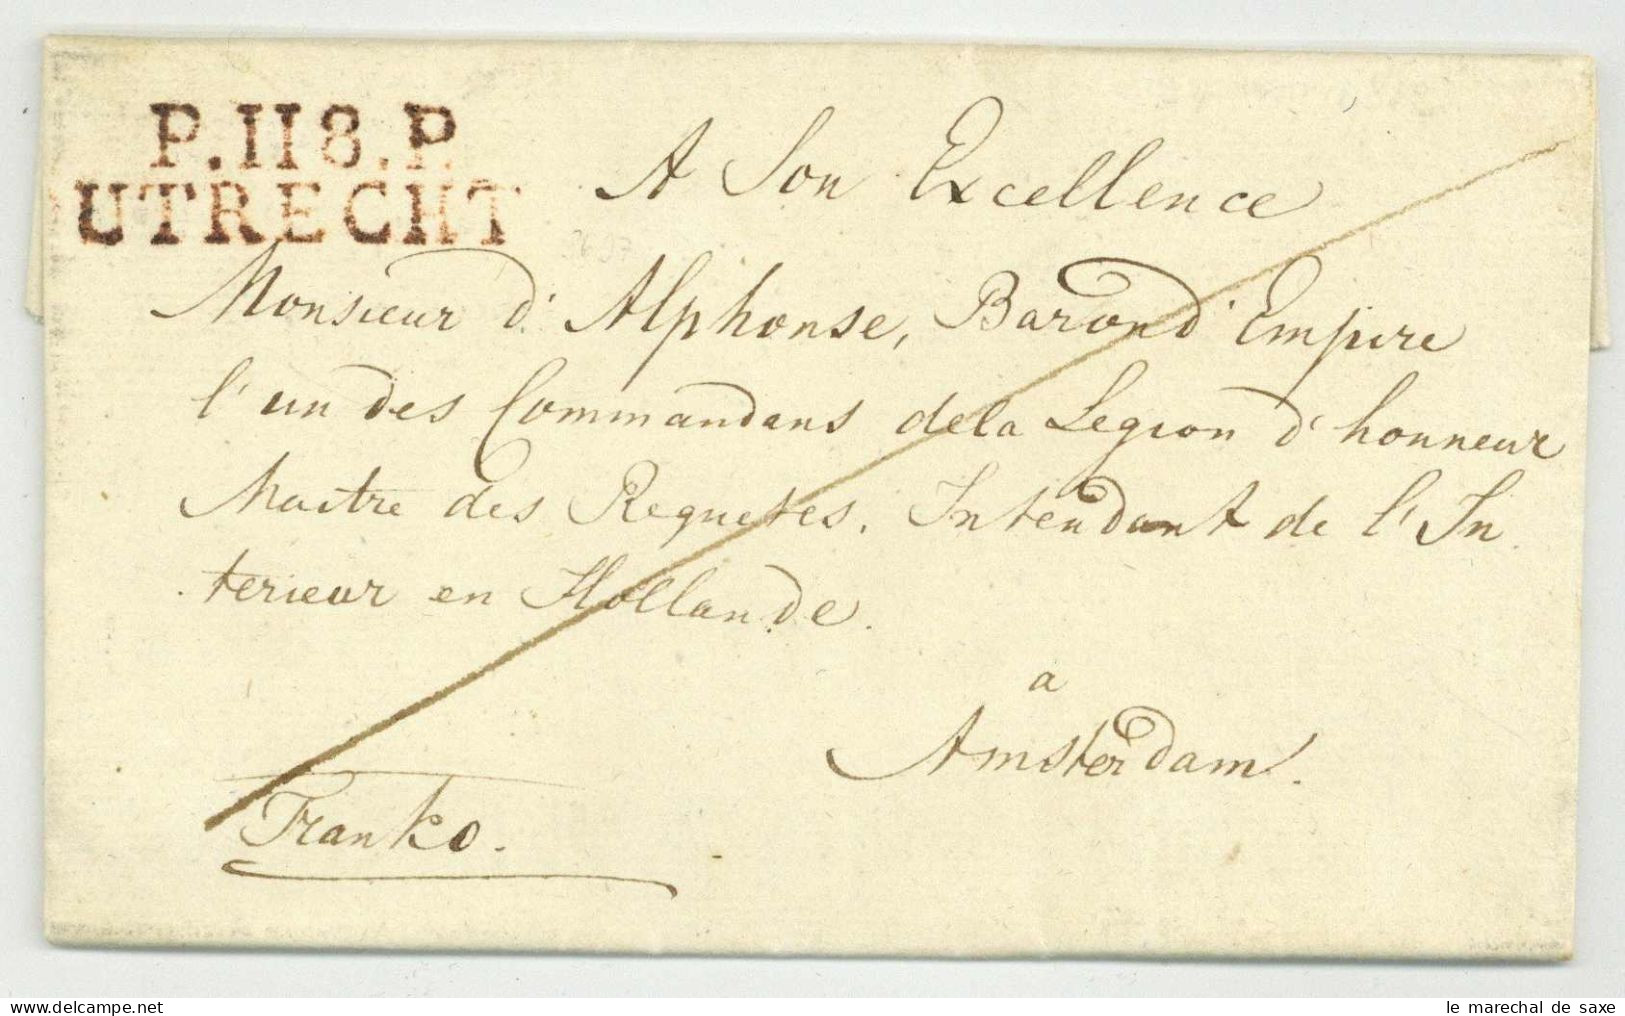 P.118.P.
UTRECHT
A Son Excellence
Monsieur d'Alphonse, Baron d'Empire
l'un des Commandans de la Legion d'honneur
Maitre des Requetes. Intendant de l'In
terieur en Hollande.
a
Amsterdam.
Franko.
le marechal de saxe